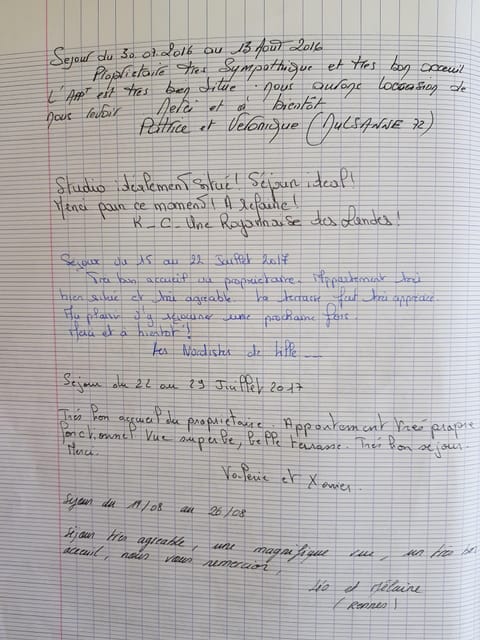 Sejour du 30.07.2016 au 13 Août 2016
Proprietaire très Sympathique et très bon acceuil
L'Appt est très bien situe. nous aurons locassion de
nous revoir Merci et a bientôt
Patrice et Veronique (MULSANNE 72)
Studio idéalement situé! Séjour ideal!
Merci pour ce moment! A refaire!
K_C_Une Royannaise des Landes!
Séjour du 15 au 22 Juillet 2017
Très bon accueil du propriétaire. Appartement très
bien situé et très agréable. La terrasse fut très appréciée.
Au plaisir d'y séjourner une prochaine fois.
Merci et à bientôt!
Les Nordistes de Lille
Séjour du 22 au 29 Juillet 2017
Très bon accueil du proprietaire. Appartement très propre
fonctionnel Vue superbe, belle terrasse. Très bon sejour.
Merci.
Valerie et Xavier.
Sejour du 19/08 au 26/08
Séjour très agreable, une magnifique vue, un très bon
acceuil, nous vous remercion,
Léo et
(RENNES)